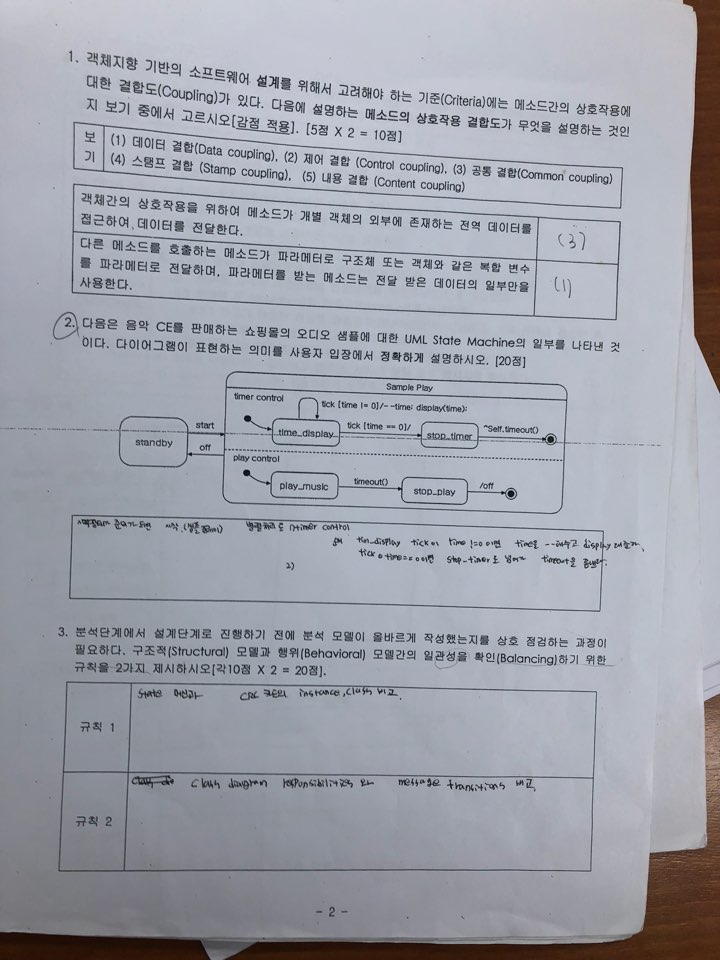 1. 객체지향 기반의 소프트웨어 설계를 위해서 고려해야 하는 기준(Criteria)에는 메소드간의 상호작용에
대한 결합도(Coupling)가 있다. 다음에 설명하는 메소드의 상호작용 결합도가 무엇을 설명하는 것인
지 보기 중에서 고르시오[감점 적용]. [5점 X 2 = 10점]
보기
(1) 데이터 결합(Data coupling), (2) 제어 결합 (Control coupling), (3) 공통 결합(Common coupling)
(4) 스탬프 결합 (Stamp coupling), (5) 내용 결합 (Content coupling)
객체간의 상호작용을 위하여 메소드가 개별 객체의 외부에 존재하는 전역 데이터를
접근하여 데이터를 전달한다.
(3)
다른 메소드를 호출하는 메소드가 파라메터로 구조체 또는 객체와 같은 복합 변수
를 파라메터로 전달하며, 파라메터를 받는 메소드는 전달 받은 데이터의 일부만을
사용한다.
(1)
2. 다음은 음악 CE를 판매하는 쇼핑몰의 오디오 샘플에 대한 UML State Machine의 일부를 나타낸 것
이다. 다이어그램이 표현하는 의미를 사용자 입장에서 정확하게 설명하시오. [20점]
Sample Play
timer control
tick [time != 0]/--time; display(time);
time_display
tick [time == 0]/
stop_timer
^Self.timeout()
standby
start
off
play control
play_music
timeout()
stop_play
/off
준비가 되면 시작 1) timer control
tim_display tick이 time !=0 이면 time을 --해주고 display 해준다,
tick이 time==0 이면 stop-timer로 넘어가 timeout을
2)
3. 분석단계에서 설계단계로 진행하기 전에 분석 모델이 올바르게 작성했는지를 상호 점검하는 과정이
필요하다. 구조적(Structural) 모델과 행위(Behavioral) 모델간의 일관성을 확인(Balancing)하기 위한
규칙을 2가지 제시하시오[각10점 X 2 = 20점].
규칙 1
State 머신과 CRC 카드의 instance, class 비교.
규칙 2
class diagram responsibilities와 message transitions 비교.
- 2 -